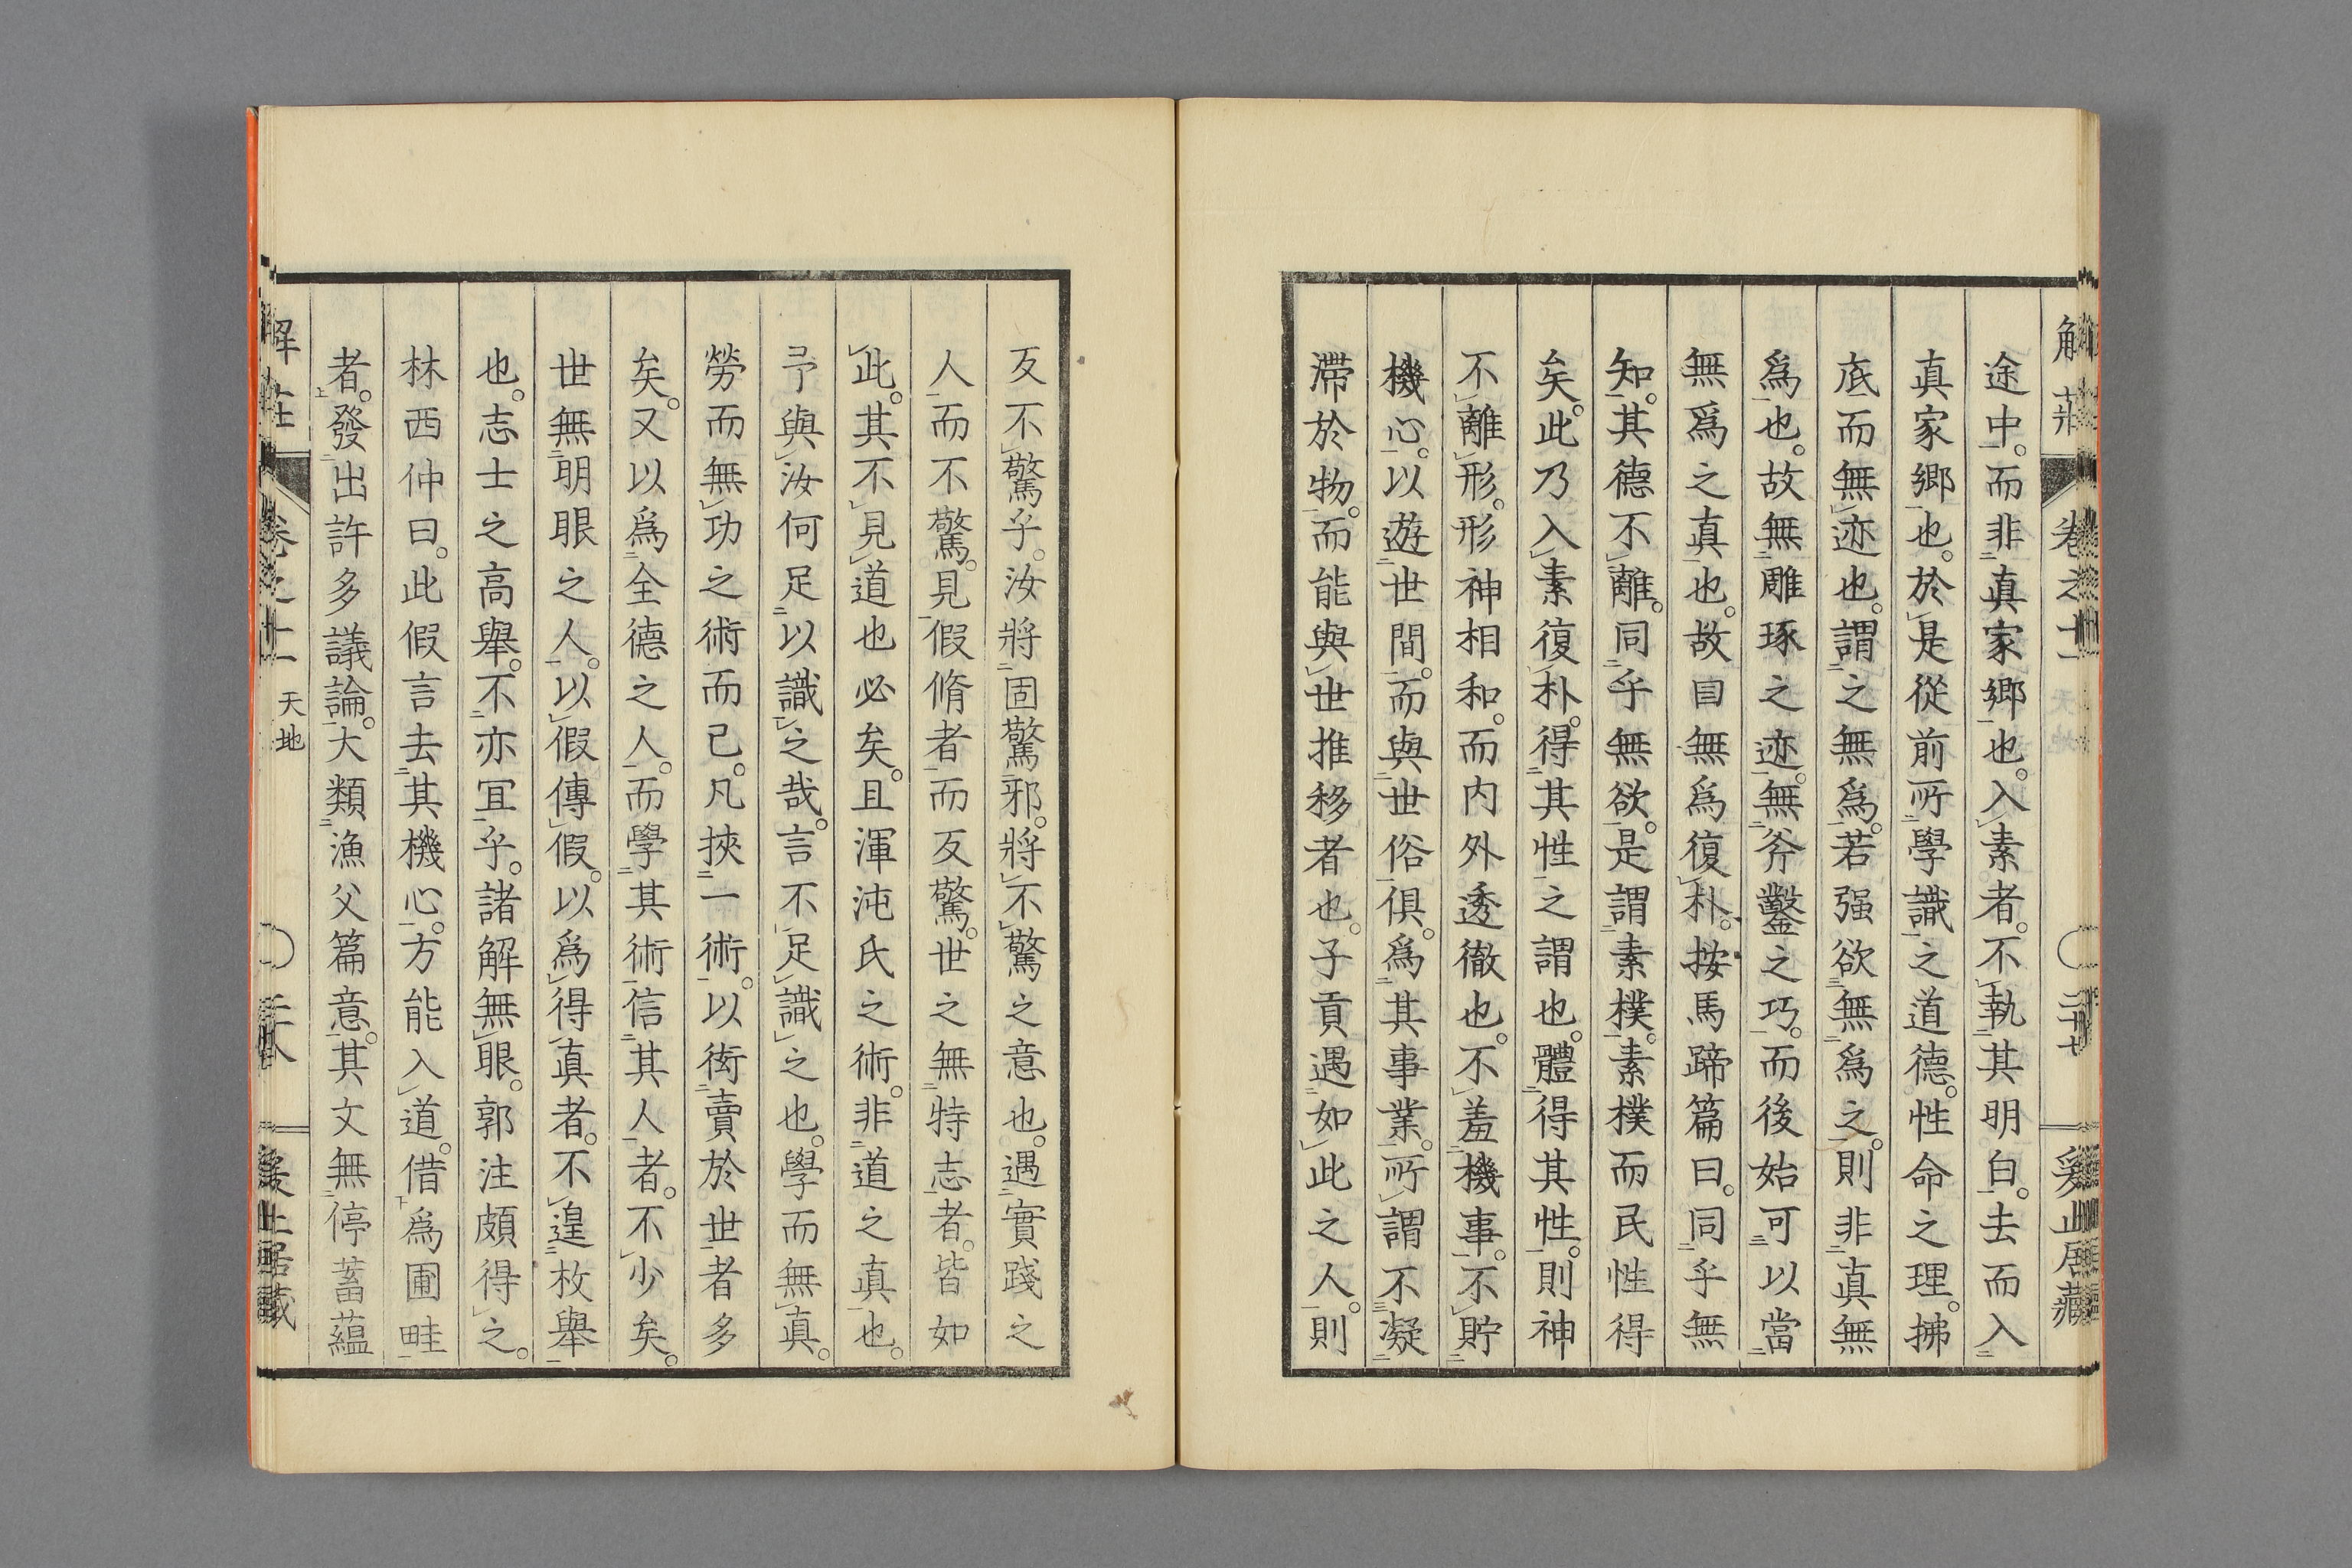 解莊 卷之十一 二十七 爰止居藏
途中。而非真家郷也。入素者。不執其明白。去而入
真家郷也。於是從前所學識之道德。性命之理。拂
底而無迹也。謂之無爲。若强欲無爲之。則非真無
爲也。故無雕琢之迹。無斧鑿之巧。而後始可以當
無爲之真也。故曰無爲復朴。按馬蹄篇曰。同乎無
知。其德不離。同乎無欲。是謂素樸。素樸而民性得
矣。此乃入素復朴。得其性之謂也。體得其性。則神
不離形。形神相和。而内外透徹也。不羞機事。不貯
機心。以遊世間。而與世俗俱。爲其事業。所謂不凝
滯於物。而能與世推移者也。子貢遇如此之人。則
反不驚乎。汝將固驚邪。將不驚之意也。遇實踐之
人而不驚。見假脩者而反驚。世之無特志者。皆如
此。其不見道也必矣。且渾沌氏之術。非道之真也。
予與汝何足以識之哉。言不足識之也。學而無真。
勞而無功之術而已。凡挾一術。以衒賣於世者多
矣。又以爲全德之人。而學其術信其人者。不少矣。
世無明眼之人。以假傳假。以爲得真者。不遑枚舉
也。志士之高舉。不亦冝乎。諸解無眼。郭注頗得之。
林西仲曰。此假言去其機心。方能入道。借爲圃畦
者。發出許多議論。大類漁父篇意。其文無停蓄蘊
解莊 天地 爰止居藏